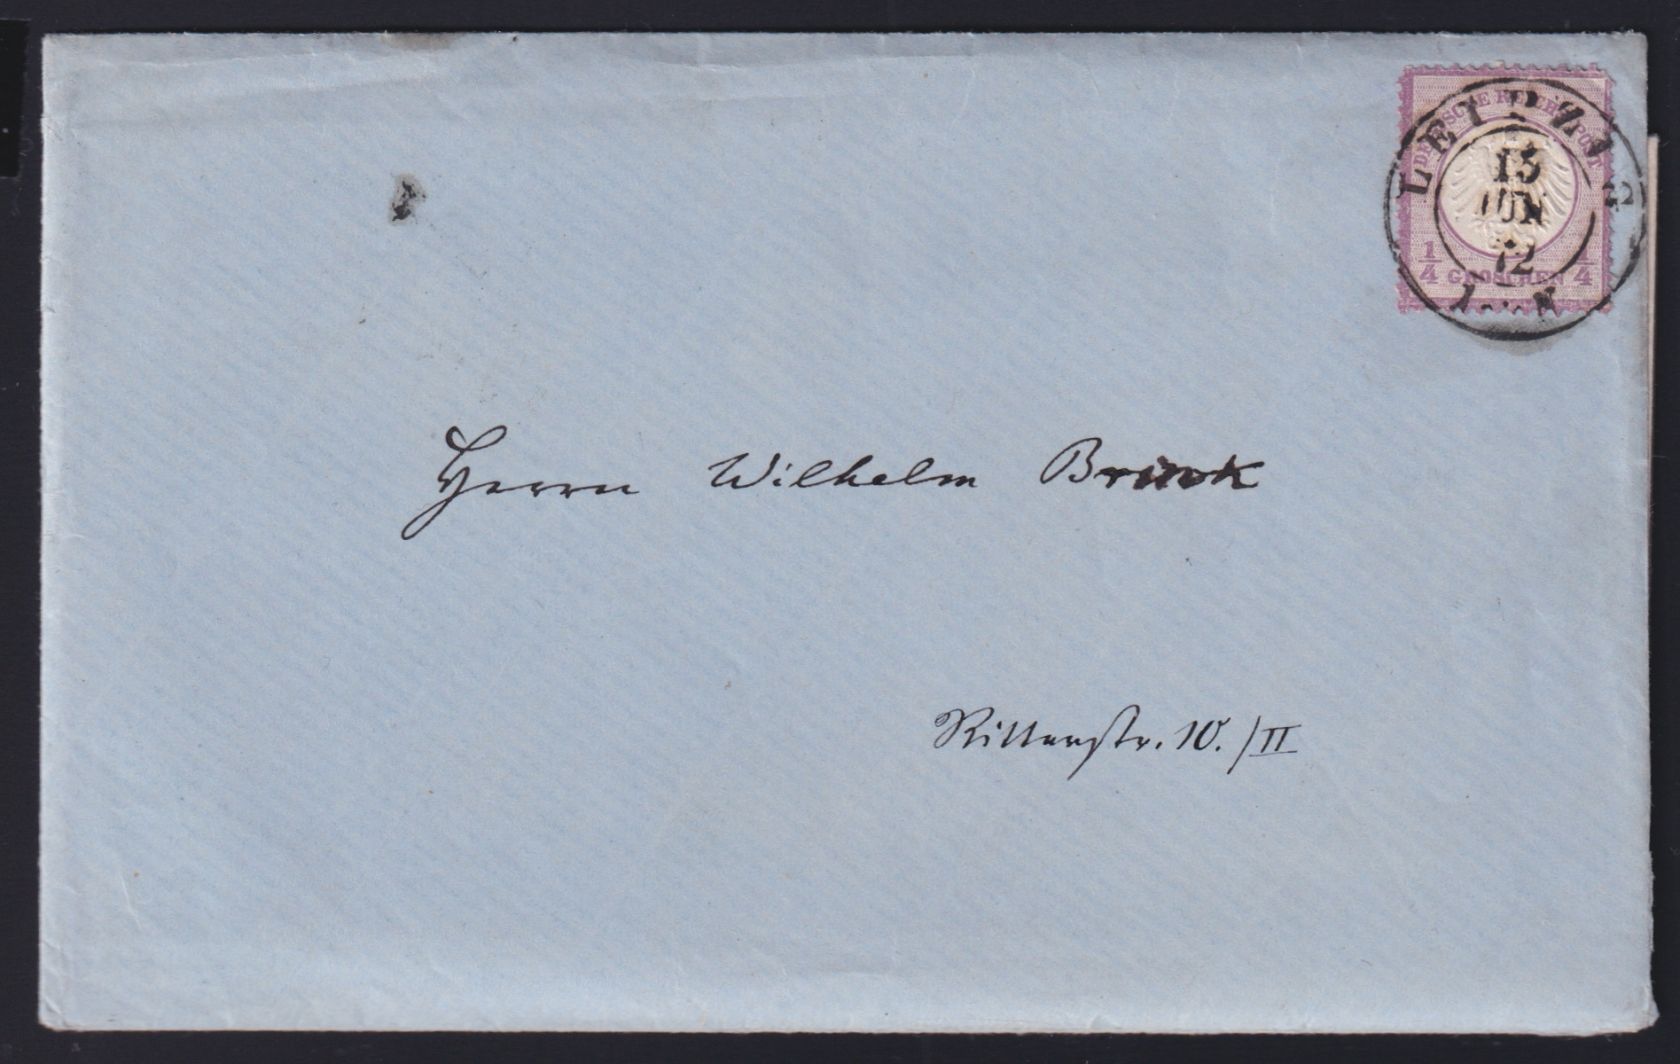 DEUTSCHE REICHS-POST
1/4 GROSCHEN 1/4
LEIPZIG
15
JUN
72
Herrn Wilhelm
Ritterstr. 10./II